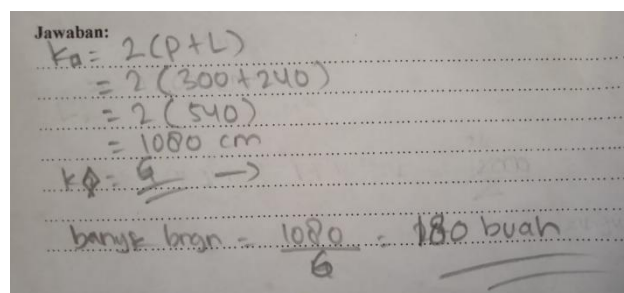 Jawaban:
K▭ = 2(P+L)
= 2(300+240)
= 2(540)
= 1080 cm
K = 6 →
banyk brgn = 1080/6 = 180 buah